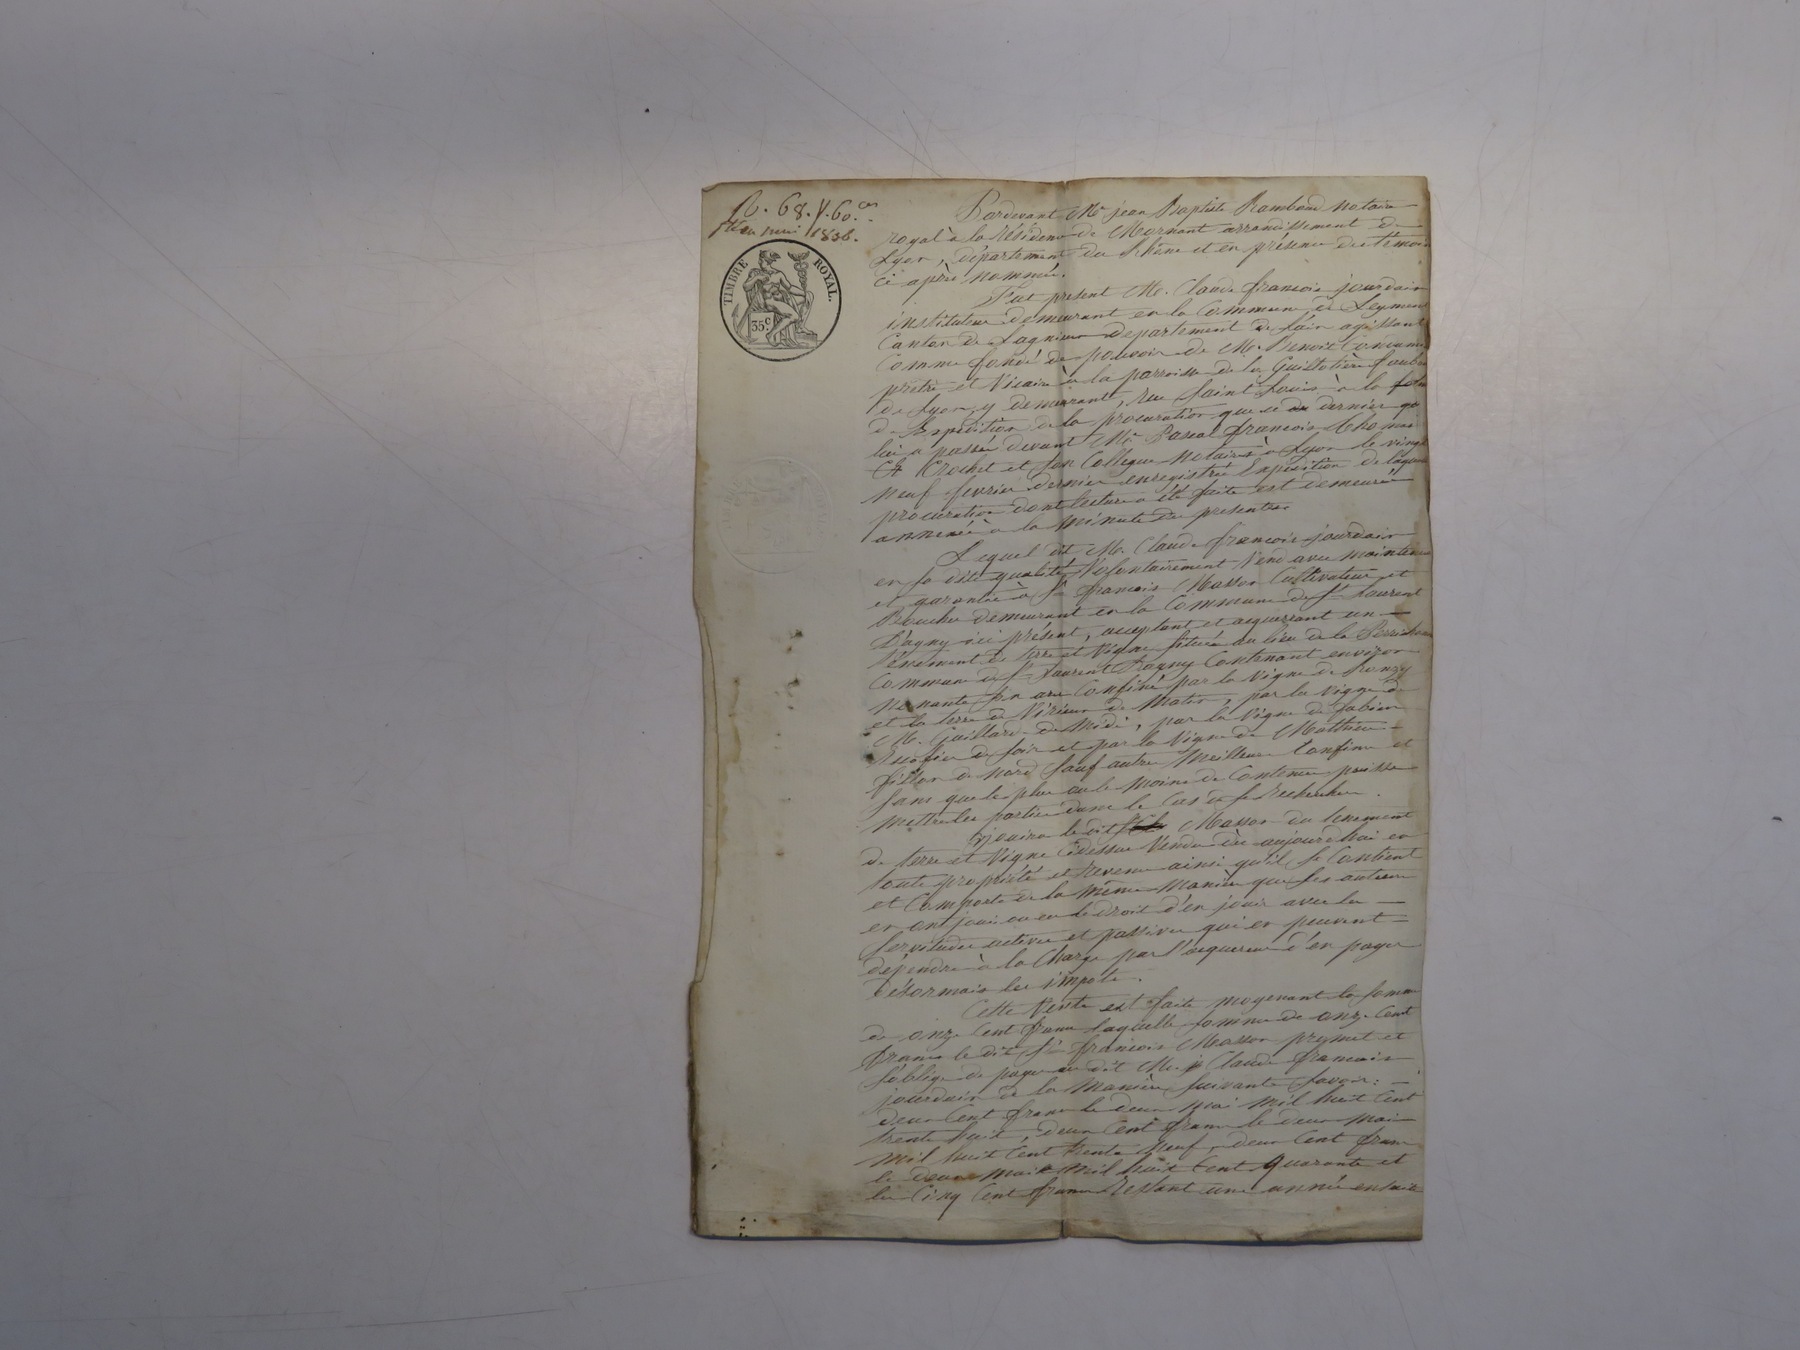 68. f. 60. cs
mai 1836.
TIMBRE ROYAL.
35 c
Pardevant Me jean Baptiste Rambaud Notaire
royal à la résidence de Mornant arrondissement de
Lyon, département du Rhône et en présence des témoins
ci après nommés.
Fut présent M. Claude françois jourdain
instituteur demeurant en la Commune de Leyment
Canton de Lagnieu département de l'ain agissant
Comme fondé de pouvoir de M. Benoit
prêtre et Vicaire à la parroisse de la Guillotière faubg
de Lyon, y demeurant, rue Saint Louis à la
d'Expédition de la procuration que ce dernier
lui a passée devant Me Pascal françois Thomas
Crochet et son Collègue Notaires à Lyon le vingt
neuf fevrier dernier enregistrée Expédition de laquelle
procuration dont lecture a été faite est demeurée
annexée à la minute des presentes
Lequel dit M. Claude françois jourdain
en sa dite qualité, Volontairement Vend avec maintenue
et garantie à Sr françois Masson Cultivateur et
demeurant en la Commune de St Laurent
D'agny ici présent, acceptant et acquerrant un
tènement de terre et Vigne située au lieu de la
Commune de St Laurent Dagny Contenant environ
ares Confiné par la vigne de
et la terre de de Matin, par la vigne de
M. Gaillard de Midi, par la vigne de fabien
de soir et par la Vigne de Matthieu
de nord sauf autres Meilleurs Confins et
sans que le plus ou le moins de Contenue puisse
mettre les parties dans le Cas de se rechercher.
jouira le dit Masson du tenement
de terre et Vigne Cidessus Vendu dès aujourdhui en
toute propriété et revenu ainsi qu'il se Contient
et Comporte de la même manière que ses auteurs
en ont joui ou eu le droit d'en jouir avec les
servitudes actives et passives qui en peuvent
dépendre à la Charge par l'acquereur d'en payer
désormais les impots.
Cette Vente est faite moyenant la somme
de onze Cent francs laquelle somme de onze Cent
francs le dit Sr françois Masson promet et
s'oblige de payer au dit M. Claude françois
jourdain de la manière suivante savoir :
deux Cent francs le deux mai mil huit Cent
trente huit, deux Cent francs le deux mai
mil huit Cent trente neuf, deux Cent francs
le deux mai mil huit Cent Quarante et
les Cinq Cent francs restant une année ensuite